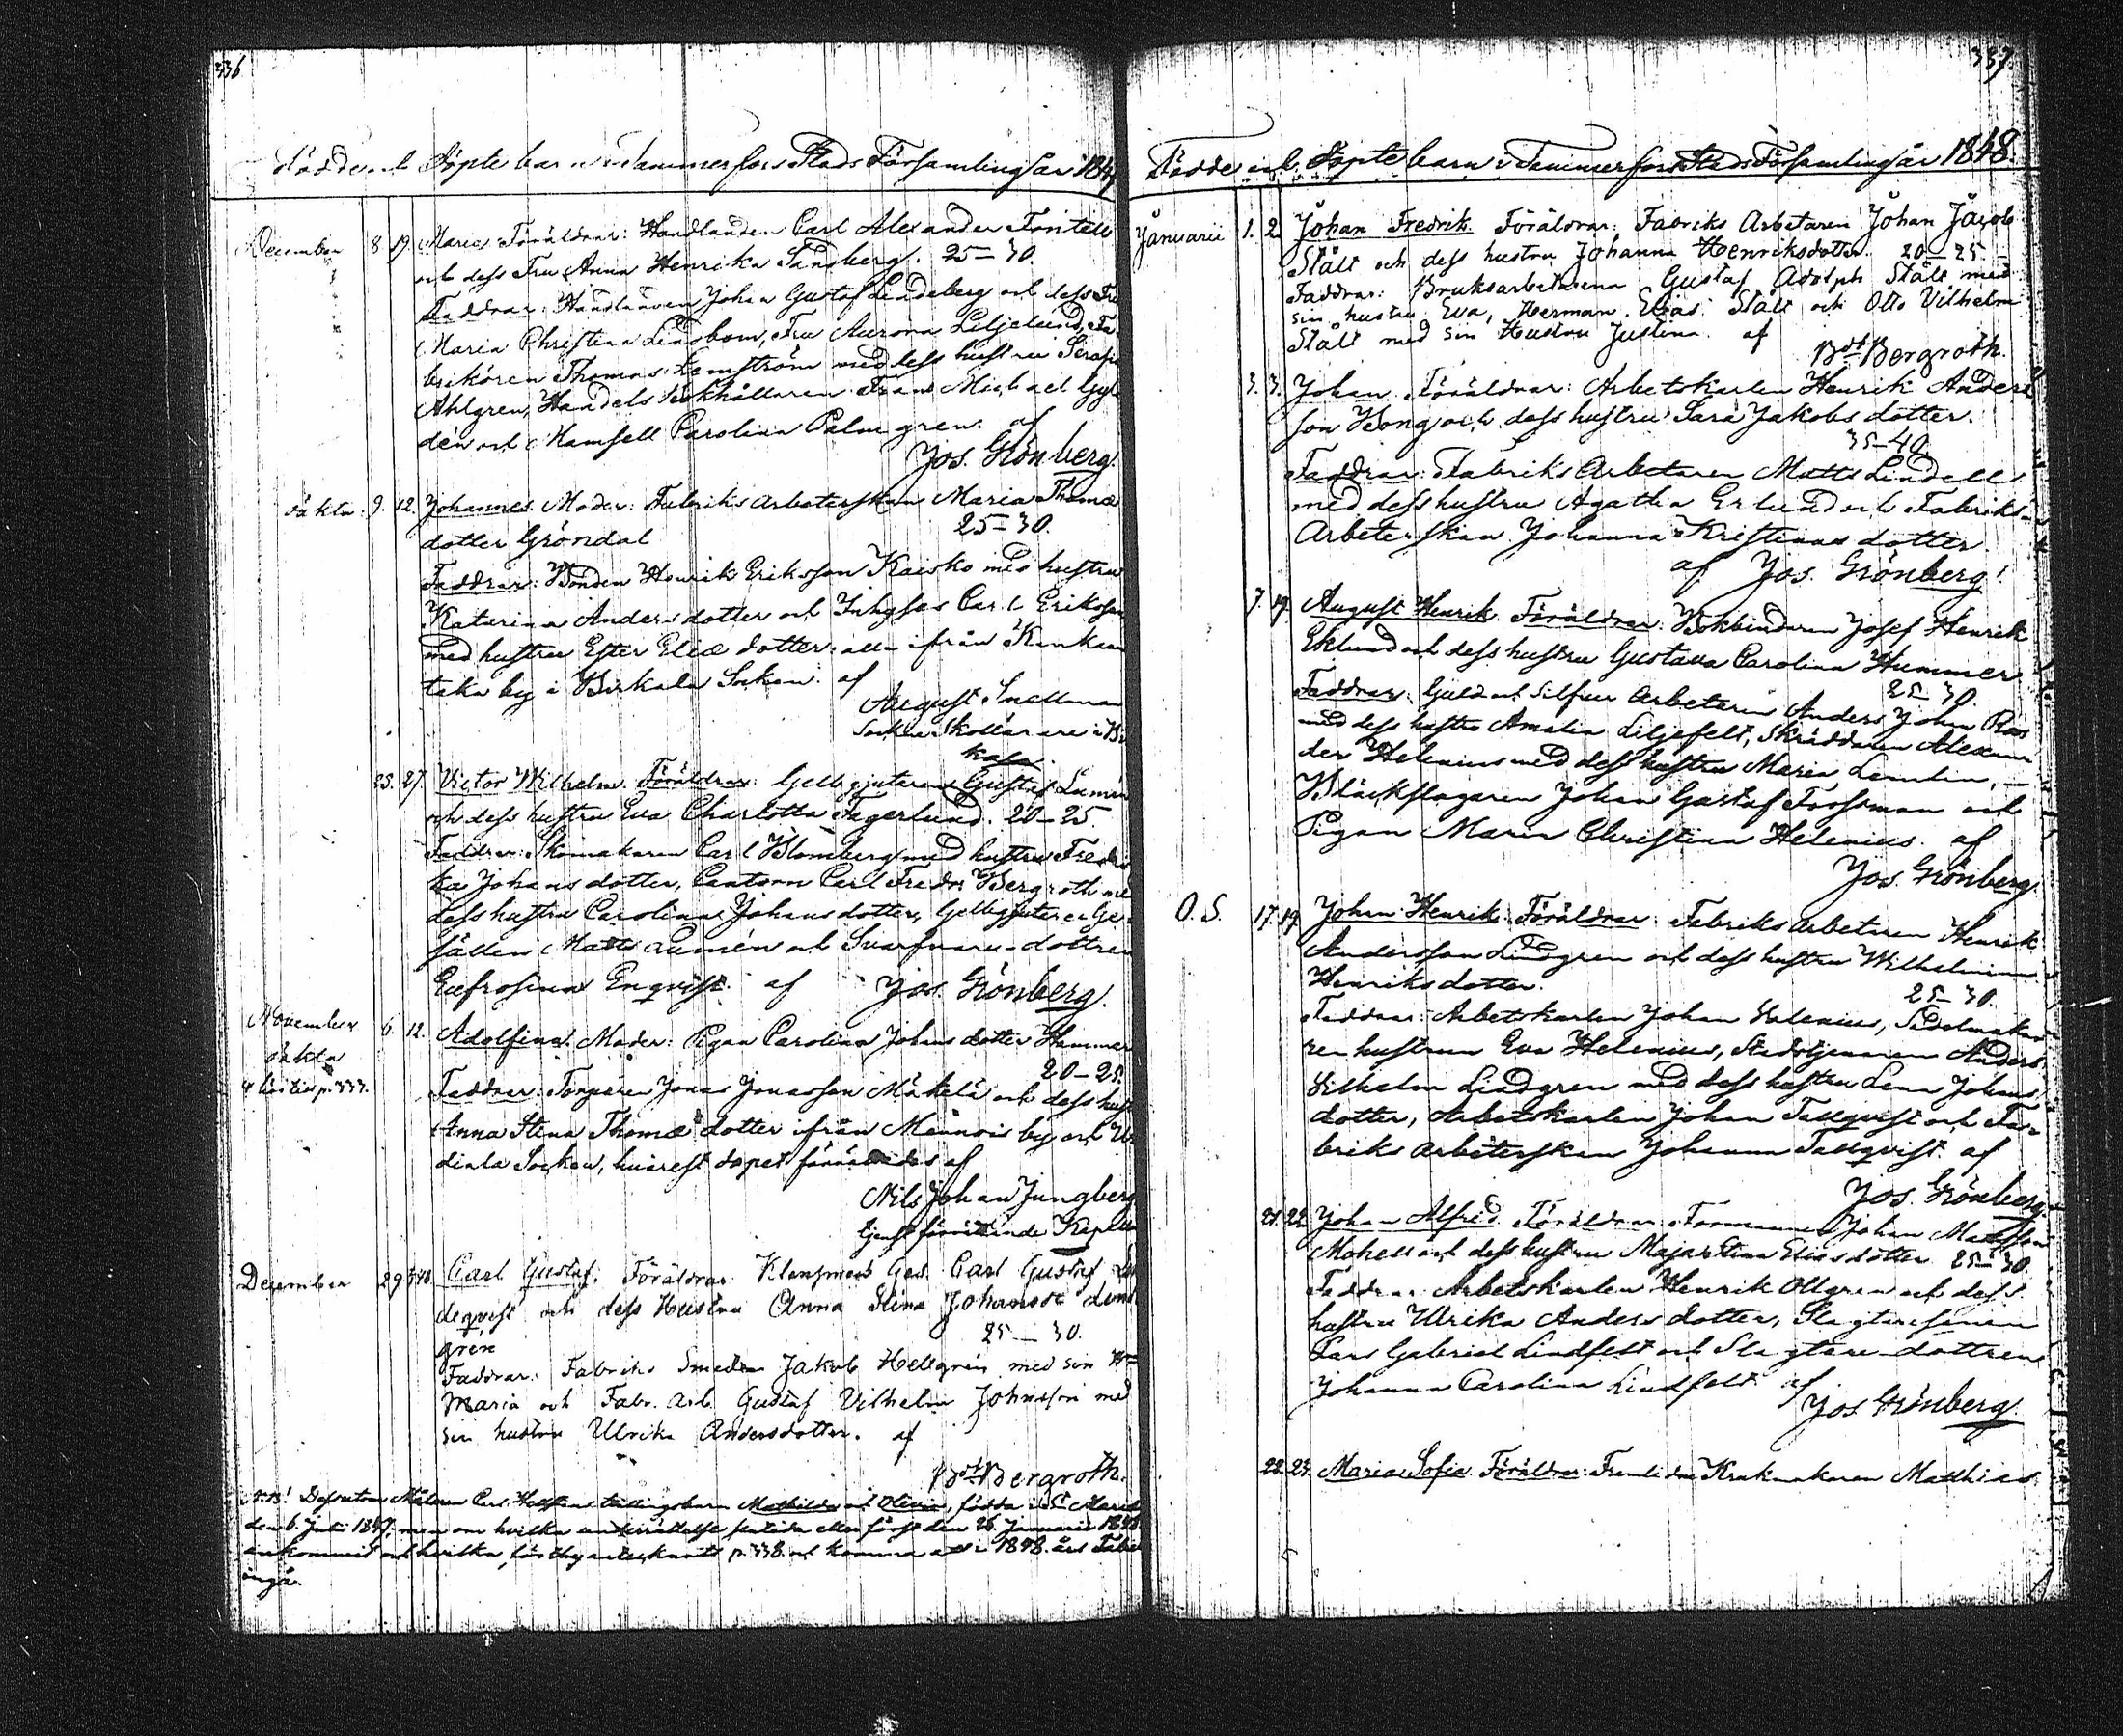 336
Födde och Döpte barn i Tammerfors Stads Församling år 1847
December 8. 19. Maria. Föräldrar: Handlanden Carl Alexander Fontell
och dess Fru Anna Henrika Sandberg. 25–30.
Faddrar: Handlanden Johan Gustaf Lindeberg och dess Fru
Maria Christina Lindbom, Fru Aurora Liljelund, Fa-
brikören Thomas med dess hustru Serafi
Ahlgren, Handels Bokhållaren Frans Michael Gyl
dén och Mamsell Carolina Palmgren. af
Jos. Grönberg.
oäkta 9. 12. Johannes. Moder: Fabriks arbeterskan Maria Thomæ
25–30.
dotter Gröndal
Faddrar: Bonden Henrik Eriksson Kaisko med hustru
Katarina Andersdotter och Inhyses Carl Eriksson
med hustru Ester Eliæ dotter, alla ifrån
taka by i Birkala Socken. af
August Snellman
Sockne Skollärare i Bir
kala.
25. 27. Victor Wilhelm. Föräldrar: Gelbgjutaren Gustaf Lumén
och dess hustru Eva Charlotta Fagerlund. 20–25.
Faddrar: Skomakaren Carl Blomberg med hustru Fredri
ka Johansdotter, Cantorn Carl Fredr. Bergroth med
dess hustru Carolina Johansdotter, Gelbgjutare Ge-
sällen Matts Lumén och Svarfvare-dottren
Eufrosina Enqvist. af Jos. Grönberg.
November 6. 12. Adolfina. Moder: Pigan Carolina Johansdotter Hammar
oäkta
20–25.
p. 333.
Faddrar: Torparen Jonas Jonasson Mäkelä och dess hust
Anna Stina Thomæ dotter ifrån Männois by och Ur
diala Socken, hvarest dopet förrättades af
Nils Johan Jungberg
tjenstförrättande Kaplan
December 29 Carl Gustaf. Föräldrar Klensmeds Ges. Carl Gustaf Lin
deqvist och dess Hustru Anna Stina Johansdr Lind
gren
25–30.
Faddrar: Fabriks Smeden Jakob Hellgrén med sin Hu
Maria och Fabr. arb. Gustaf Vilhelm Johnsson med
sin hustru Ulrika Andersdotter. af
Bergroth.
N.B! Dessutom Målaren Carl tvillingsbarn Mathilda och Olivia, födda i
den 6. Juli 1847, men om hvilka underrättelse först den 26 Januarii 1848
ankommit och hvilka, antecknats p. 338 och komma att i 1848 års Tabell
ingå.
337.
Födde och Döpte barn i Tammerfors Stads Församling år 1848.
Januarii 1. 2. Johan Fredrik. Föräldrar: Fabriks Arbetaren Johan Jacob
Stålt och dess hustru Johanna Henriksdotter. 20–25.
Faddrar: Bruksarbetarena Gustaf Adolph Stålt med
sin hustru Eva, Herman Elias Stålt och Otto Vilhelm
Stålt med sin Hustru Justina. af
Bergroth.
3. 3. Johan. Föräldrar: Arbetskarlen Henrik Anders
son Bong och dess hustru Sara Jakobsdotter.
35–40.
Faddrar: Fabriks Arbetaren Matts Lindell
med dess hustru Agatha Erlund och Fabriks-
Arbeterskan Johanna Kristiansdotter
af Jos. Grönberg!
7. 19. August Henrik. Föräldrar: Bokbindaren Josef Henrik
Eklund och dess hustru Gustava Carolina Hummer
25–30.
Faddrar: Guld och Silfver Arbetaren Anders Johan Roos
med dess hustru Amalia Liljefelt, Skräddaren Alexan
der Helenius med dess hustru Maria Lemlin,
Bläckslagaren Johan Gustaf Forssman och
Pigan Maria Christina Helenius. af
Jos. Grönberg.
O.S. 17. 19. Johan Henrik. Föräldrar: Fabriks arbetaren Henrik
Andersson Lindgren och dess hustru Wilhelmina
Henriksdotter.
25–30.
Faddrar: Arbetskarlen Johan Salenius, Sadelmaka
re hustrun Eva Helenius, Stadstjenaren Anders
Vilhelm Lindgren med dess hustru Lena Johans
dotter, Arbetskarlen Johan Tallqvist och Fa-
briks arbeterskan Johanna Tallqvist. af
Jos. Grönberg.
21. 22. Johan Alfred. Föräldrar: Formannen Johan Matsson
Mahell och dess hustru Maja Stina Eliasdotter 25–30.
Faddrar: Arbetskarlen Henrik Ollgren och dess
hustru Ulrika Andersdotter, Slagtaresonen
Lars Gabriel Lindfelt och Slagtare-dottren
Johanna Carolina Lindfelt. af
Jos. Grönberg.
22. 23. Maria Sofia. Föräldrar: Krukmakaren Matthias